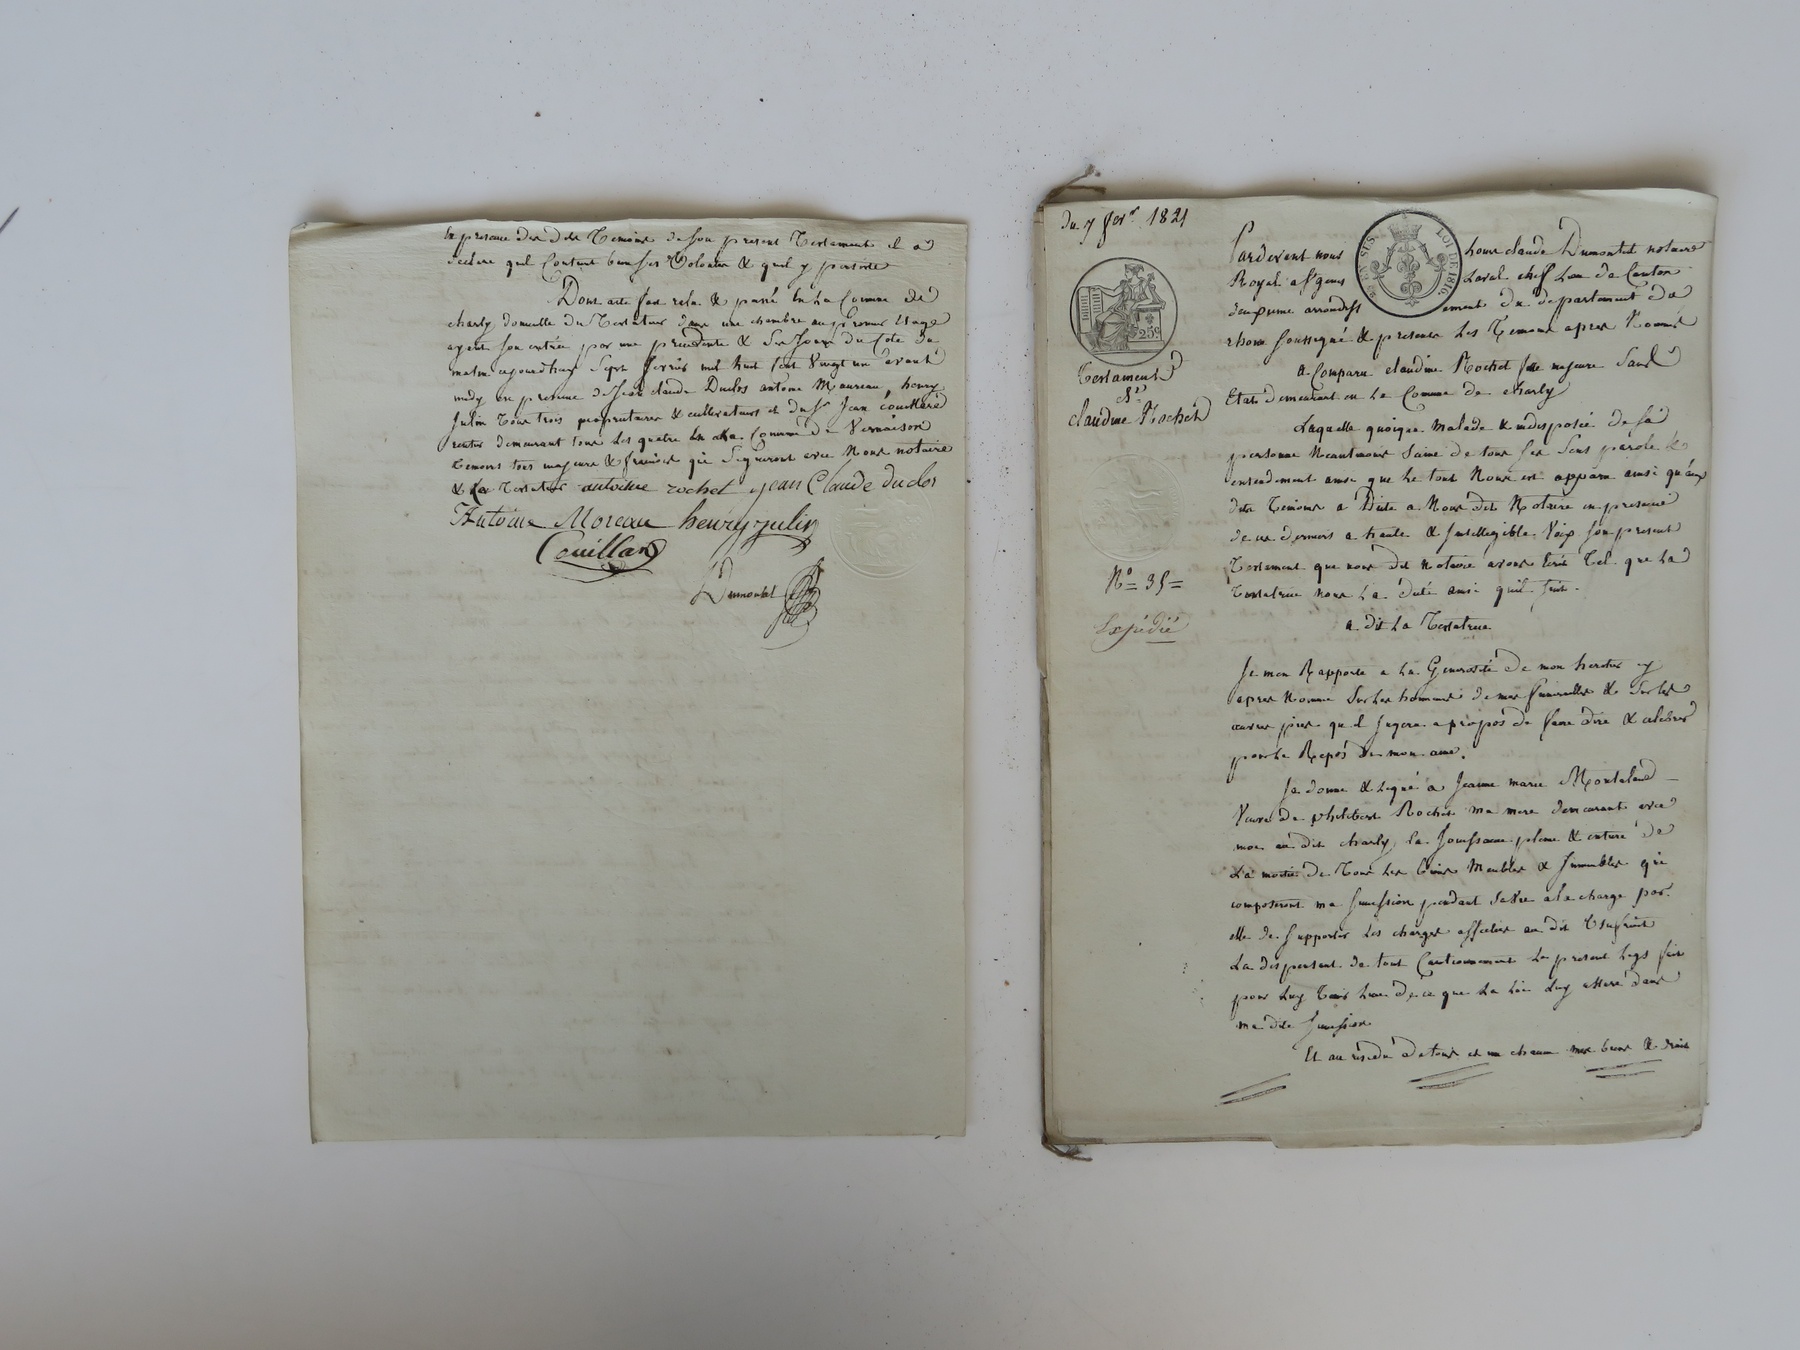 En presence des dits Temoins de son present Testament il a
declaré quil Contient bien ses Volontés & quil y persiste
Dont acte fait relu & passé En La Comune de
charly domicille du Testateur dans une chambre au premier Etage
ayant son entrée par une &
matin aujourdhuy Sept fevrier mil huit Cent Vingt un avant
midy en presence de Jean claude Duclos antoine Moureau, henry
Julin Tous trois proprietaires & cultivateurs et du Sr Jean Couillard
rentier demeurant tous Les quatre En La Comune de Vernaison
Temoins tous majeurs & français qui Signeront avec Nous notaire
& Le Testateur antoine rochet jean Claude duclos
Antoine Moreau henry julin
Couillard
Dumontet
Du 7 fevr 1821
LOI DE 1816.
25c
Testament
de
Claudine Rochet
No = 35 =
Expédié
Pardevant nous home claude Dumontet notaire
Royal a St genis Laval chef Lieu de Canton
deuxieme arrondissement du departement du
rhone soussigné & presence des Temoins apres Nommés
a Comparu claudine Rochet fille majeure Sans
Etat demeurant en La Comune de charly
Laquelle quoique Malade & indisposée de sa
personne Neantmoins Saine de tous ses Sens parole &
entendement ainsi que Le tout Nous est apparu ainsi qu'aux
dits Temoins a Dicté a Nous dit Notaire en presence
de ces derniers a haute & Intelligible Voix Son present
Testament que nous dit Notaire avons Ecrit Tel que La
Testatrice nous La dicté ainsi quil suit.
a dit La Testatrice
Je men Rapporte a La Generosité de mon heritier cy
apres Nommé Sur Les honneurs de mes funerailles & Sur Les
œuvres pies qu'il Jugera apropos de faire dire & celebrer
pour Le Repos de mon ame.
Je donne & Legue a Jeanne marie Montaland
Veuve de philibert Rochet ma mere demeurant avec
moi au dit charly, la Jouissance pleine & entiere de
La moitié de Tous Les biens Meubles & Immeubles qui
composeront ma Succession pendant Sa Vie a la charge par
elle de Supporter Les charges affectées au dit Usufruit
La dispensant de tout Cautionnement Le present Legs fait
pour Luy Tenir Lieu de ce que La Loi Luy assure dans
ma dite Succession
Et au résidu de tous et un chacun mes biens & droits